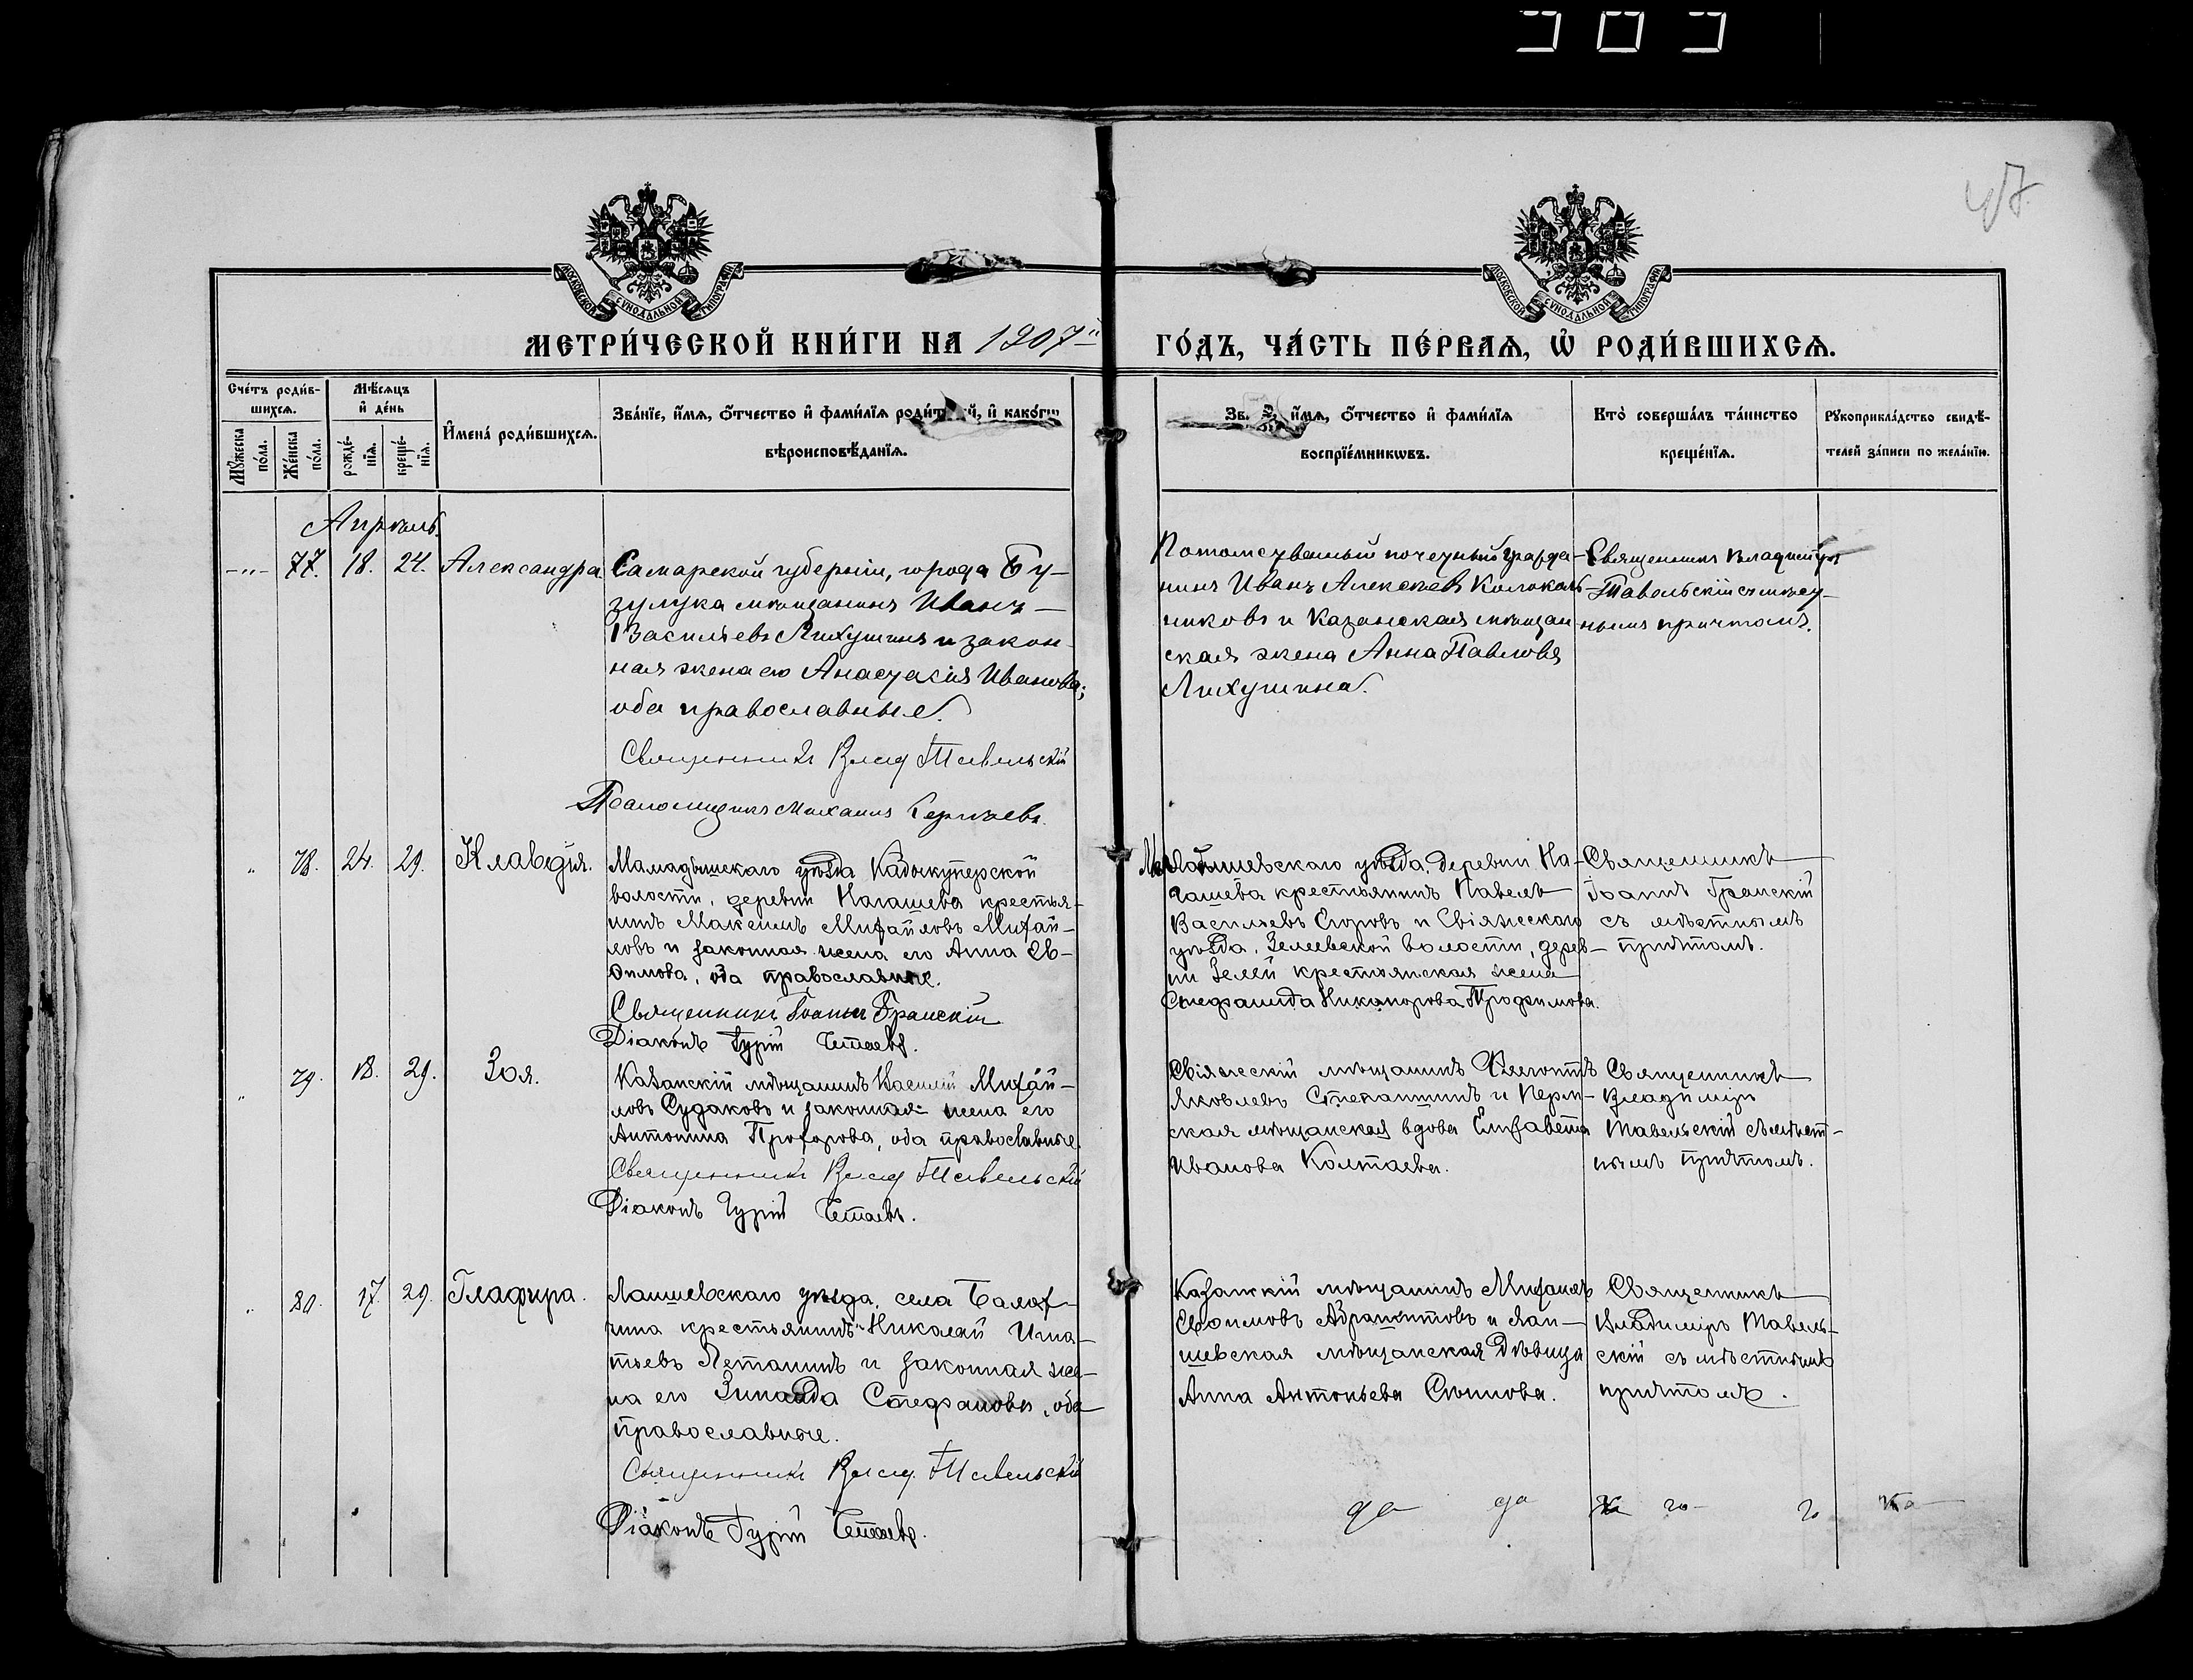 47.
МОСКОВСКОЙ СУНОДАЛЬНОЙ ТИПОГРАФІИ
МОСКОВСКОЙ СУНОДАЛЬНОЙ ТИПОГРАФІИ
МЕТРИ́ЧЕСКОЙ КНИ́ГИ НА 1907й ГО́ДЪ, ЧА́СТЬ ПЕ́РВАѦ, Ѡ҆ РОДИ́ВШИХСѦ.
Сче́тъ роди́в-
шихсѧ.
Мѣ́сѧцъ
и҆ де́нь
Мꙋ́жеска
по́ла.
Же́нска
по́ла.
рожде́-
нїѧ.
креще́-
нїѧ.
И҆мена̀ роди́вшихсѧ.
Зва́нїе, и҆́мѧ, ѻ҆́тчество и҆ фами́лїѧ роди́т й, и҆ како́гѡ
вѣроисповѣ́данїѧ.
Зв. и҆́мѧ, ѻ҆́тчество и҆ фами́лїѧ
воспрїе́мникѡвъ.
Кто̀ соверша́лъ та́инство
креще́нїѧ.
Рꙋкоприкла́дство свидѣ́-
телей за́писи по жела́нїю.
Апрѣль.
-"- 77. 18. 24. Александра
Самарской губерніи, города Бу-
зулука мѣщанинъ Иванъ
Васильевъ Лихушинъ и закон-
ная жена его Анастасія Иванова;
оба православные.
Священникъ Влад Тавельскій
Псаломщикъ Михаилъ Сергѣевъ.
Потомственный почетный гражда-
нинъ Иванъ Алексѣевъ Колоколь-
никовъ и Казанская мѣщан
ская жена Анна Павлова
Лихушина.
Священникъ Владиміръ
Тавельскій съ мѣст-
нымъ причтомъ.
" 78. 24. 29. Клавдія.
Мамадышскаго уѣзда Кабыкуперской
волости, деревни Качашева крестья-
нинъ Максимъ Михайловъ Михай-
ловъ и законная жена его Анна Ев-
ѳимова, оба православные.
Священникъ Іоаннъ Грамскій
Діаконъ Гурій
Мамадышевскаго уѣзда, деревни Ка-
чашева крестьянинъ Павелъ
Васильевъ Егоровъ и Свіяжскаго
уѣзда, волости, дерев-
ни крестьянская жена
Стефанида Никанорова Трофимова.
Священникъ
Іоаннъ Грамскій
съ мѣстнымъ
причтомъ.
" 79. 18. 29. Зоя.
Казанскій мѣщанинъ Василій Михай-
ловъ Судаковъ и законная жена его
Антонина Прохорова, оба православные.
Священникъ Влад Тавельскій
Діаконъ Гурій
Свіяжскій мѣщанинъ
Яковлевъ и Перм-
ская мѣщанская вдова Елизавета
Иванова Колтаева.
Священникъ
Владиміръ
Тавельскій съ мѣст-
нымъ причтомъ.
" 80. 17. 29. Глафира.
Лаишевскаго уѣзда, села Балах-
чина крестьянинъ Николай Игна-
тьевъ Леташинъ и законная же-
на его Зинаида Стефанова, оба
православные.
Священникъ Влад. Тавельскій
Діаконъ Гурій
Казанскій мѣщанинъ Михаилъ
Евѳимовъ и Лаи-
шевская мѣщанская дѣвица
Анна Антоньева
Священникъ
Владиміръ Тавель-
скій съ мѣстнымъ
причтомъ.